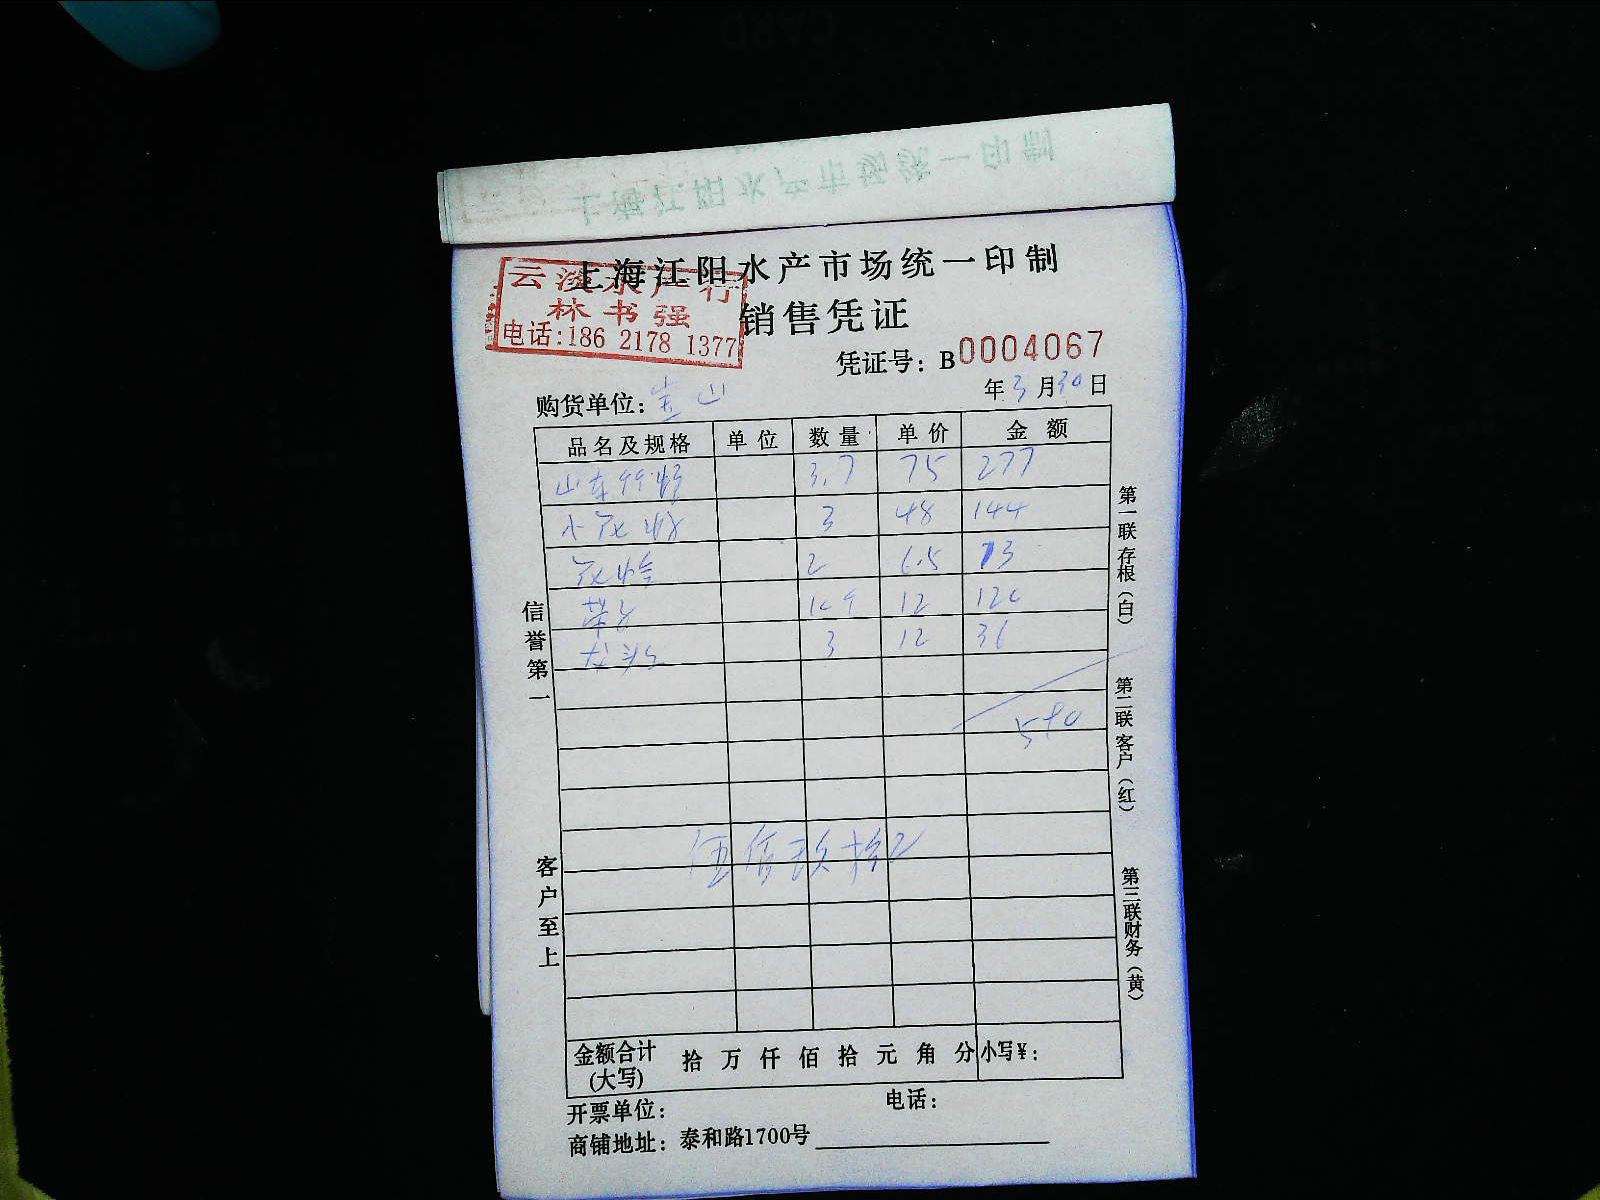 上海江阳水产市场统一印制
上海江阳水产市场统一印制
云淡水产行
林书强
电话:186 2178 1377
销售凭证
凭证号: B0004067
年3月30日
购货单位: 宝山
品名及规格 单位 数量 单价 金额
3.7 75 277
3 48 144
花蛤 2 6.5 13
带子 10个 12 120
3 12 36
590
伍佰玖拾元
金额合计(大写) 拾 万 仟 佰 拾 元 角 分 小写¥:
开票单位: 电话:
商铺地址: 泰和路1700号
信誉第一
客户至上
第一联存根(白)
第二联客户(红)
第三联财务(黄)